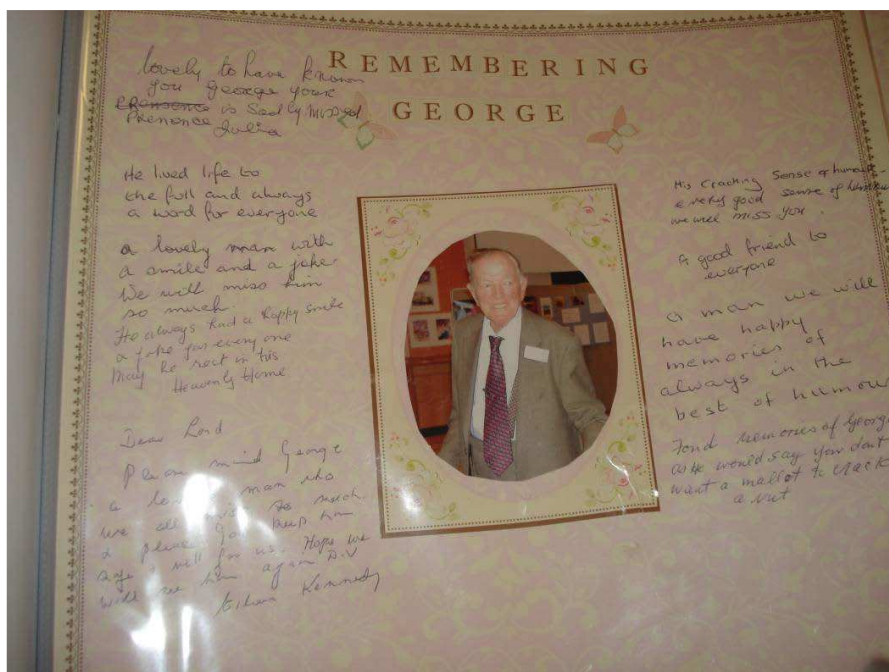 REMEMBERING
GEORGE
lovely to have known
you george your
is Sadly missed
Julia
He lived life to
the full and always
a word for everyone
a lovely man with
a smile and a joke
We will miss him
so much.
He always had a happy smile
a joke for every one
May he rest in his
Heavenly Home
Dear Lord
Please mind George
a man who
we all so much
& please God keep him
safe & well for us. Hope we
will see him again D.V
Kennedy
His Cracking Sense of humour -
a very good sense of humour
we will miss you.
A good friend to
everyone
a man we will
have happy
memories of
always in the
best of humour
Fond memories of George
as he would say you don't
want a mallot to crack
a nut